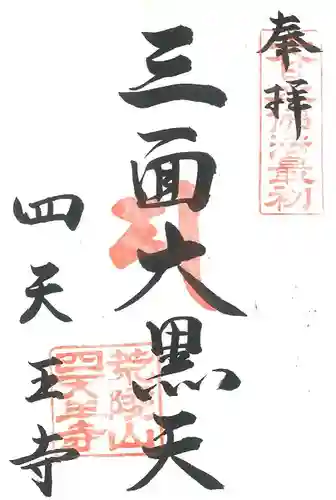 奉拝
三面大黒天
四天王寺
荒陵山
四天王寺